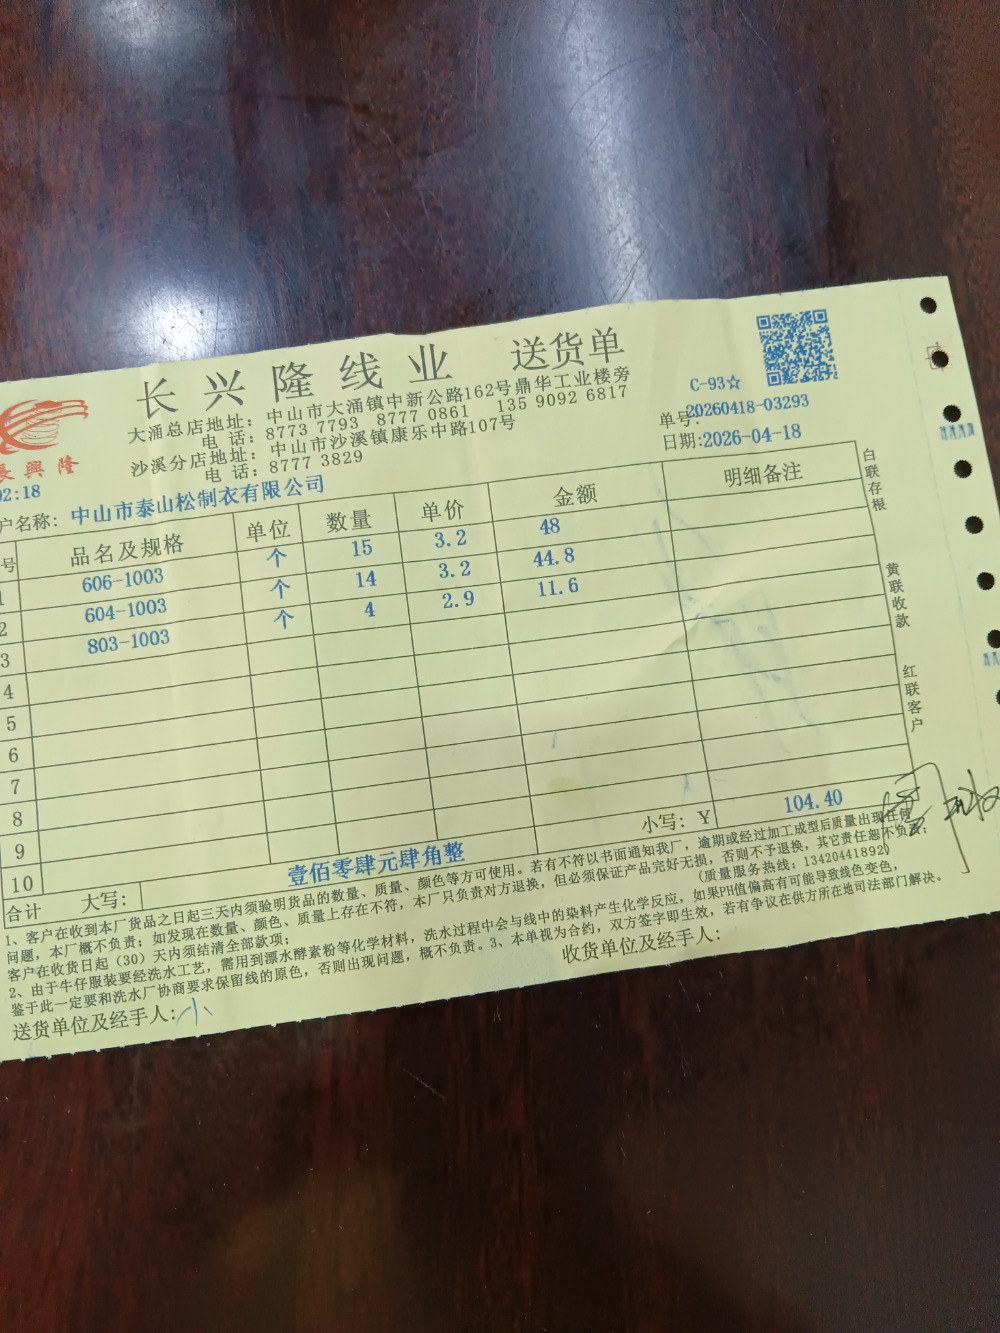 长兴隆线业 送货单
大涌总店地址：中山市大涌镇中新公路162号鼎华工业楼旁
电话：8773 7793 8777 0861 135 9092 6817
沙溪分店地址：中山市沙溪镇康乐中路107号
电话：8777 3829
C-93☆
单号:20260418-03293
日期:2026-04-18
長興隆
02:18
户名称：中山市泰山松制衣有限公司
号 品名及规格 单位 数量 单价 金额 明细备注
1 606-1003 个 15 3.2 48
2 604-1003 个 14 3.2 44.8
3 803-1003 个 4 2.9 11.6
4
5
6
7
8
9
10
合计 大写：壹佰零肆元肆角整 小写：￥ 104.40
白联存根
黄联收款
红联客户
1、客户在收到本厂货品之日起三天内须验明货品的数量、质量、颜色等方可使用。若有不符以书面通知我厂，逾期或经过加工成型后质量出现任何
问题，本厂概不负责；如发现在数量、颜色、质量上存在不符，本厂只负责对方退换，但必须保证产品完好无损，否则不予退换，其它责任恕不负责；
客户在收货日起（30）天内须结清全部款项；
(质量服务热线：13420441892)
2、由于牛仔服装要经洗水工艺，需用到漂水酵素粉等化学材料，洗水过程中会与线中的染料产生化学反应，如果PH值偏高有可能导致线色变色，
鉴于此一定要和洗水厂协商要求保留线的原色，否则出现问题，概不负责。3、本单视为合约，双方签字即生效，若有争议在供方所在地司法部门解决。
送货单位及经手人：小
收货单位及经手人：